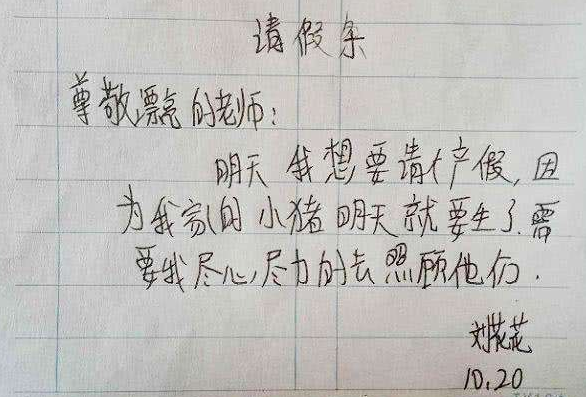 请假条
尊敬漂亮的老师：
明天我想要请产假，因
为我家的小猪明天就要生了.需
要我尽心,尽力的去照顾他们.
刘花花
10.20